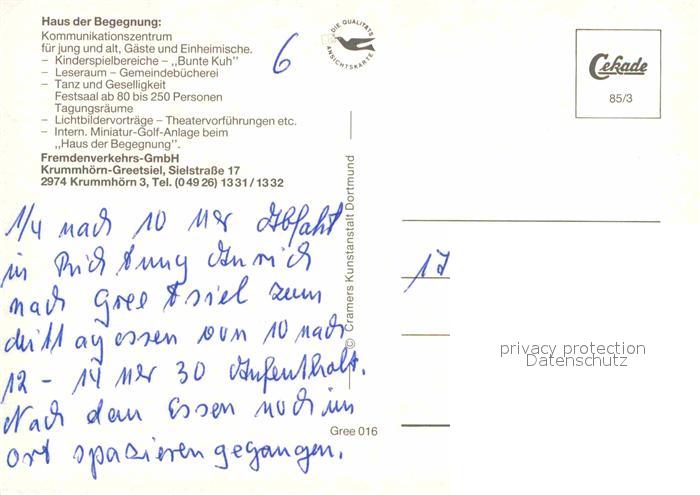 Haus der Begegnung:
Kommunikationszentrum
für jung und alt, Gäste und Einheimische.
– Kinderspielbereiche – ,,Bunte Kuh"
– Leseraum – Gemeindebücherei
– Tanz und Geselligkeit
Festsaal ab 80 bis 250 Personen
Tagungsräume
– Lichtbildervorträge – Theatervorführungen etc.
– Intern. Miniatur-Golf-Anlage beim
,,Haus der Begegnung".
Fremdenverkehrs-GmbH
Krummhörn-Greetsiel, Sielstraße 17
2974 Krummhörn 3, Tel. (0 49 26) 13 31 / 13 32
6
DIE QUALITÄTS
ANSICHTSKARTE
Cekade
85/3
1/4 nach 10 Uhr Abfahrt
in Richtung Aurich
nach Greetsiel zum
Mittagessen von 10 nach
12 – 14 Uhr 30 Aufenthalt.
Nach dem Essen noch im
Ort spazieren gegangen.
© Cramers Kunstanstalt Dortmund
Gree 016
17
privacy protection
Datenschutz